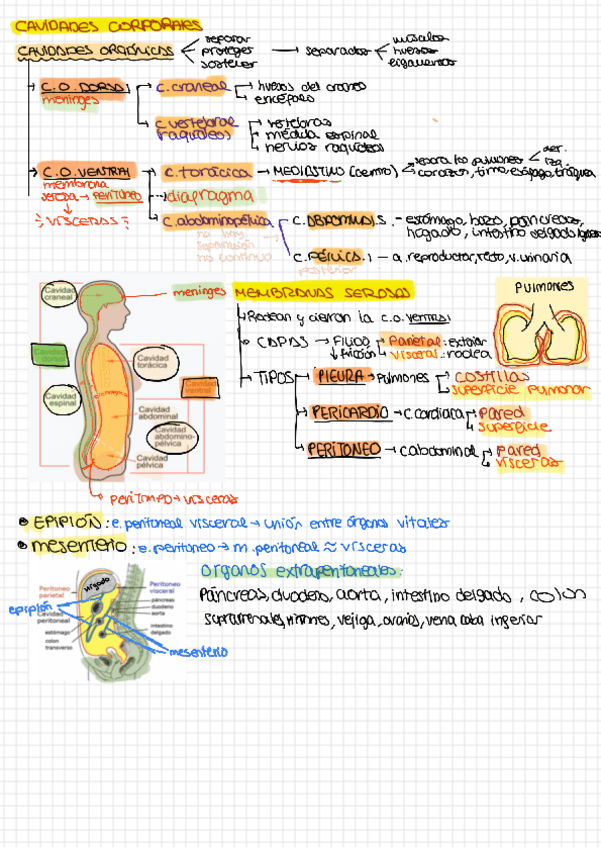 CAVIDADES CORPORALES
CAVIDADES ORGÁNICAS
separar
proteger
sostener
separados
músculos
huesos
ligamentos
C.O. DORSAL
meninges
c. craneal
huesos del cráneo
encéfalo
c. vertebral
raquídeos
vertebras
médula espinal
nervios raquídeos
C.O. VENTRAL
membrana
serosa → PERITONEO
VÍSCERAS
c. torácica → MEDIASTINO (centro)
separa los pulmones
corazón, timo, esófago, tráquea
diafragma
c. abdominopélvica
no hay
separación
no continua
C. ABDOMINAL
estómago, bazo, páncreas,
hígado, intestino delgado
C. PÉLVICA
posterior
a. reproductor, recto, v. urinaria
Cavidad
craneal
meninges
Cavidad
dorsal
Cavidad
torácica
Cavidad
espinal
Cavidad
ventral
Cavidad
abdominal
Cavidad
abdomino-
pélvica
Cavidad
pélvica
PERITONEO → vísceras
MEMBRANAS SEROSAS
Rodean y cierran la C.O. VENTRAL
CAPAS → Fluido
↓ fricción
Parietal: exterior
Visceral: rodea
TIPOS
PLEURA → Pulmones
COSTILLAS
superficie pulmonar
PERICARDIO → c. cardiaca
pared
superficie
PERITONEO → c. abdominal
pared
vísceras
PULMONES
EPIPLÓN: e. peritoneal visceral → unión entre órganos vitales
mesenterio: e. peritoneo → m. peritoneal ≈ vísceras
organos extraperitoneales:
Páncreas, duodeno, aorta, intestino delgado, colon
Suprarrenales, riñones, vejiga, ovarios, vena caba inferior
hígado
Peritoneo
parietal
epiplón
Cavidad
peritoneal
estómago
colon
transverso
Peritoneo
visceral
páncreas
duodeno
aorta
intestino
delgado
mesenterio